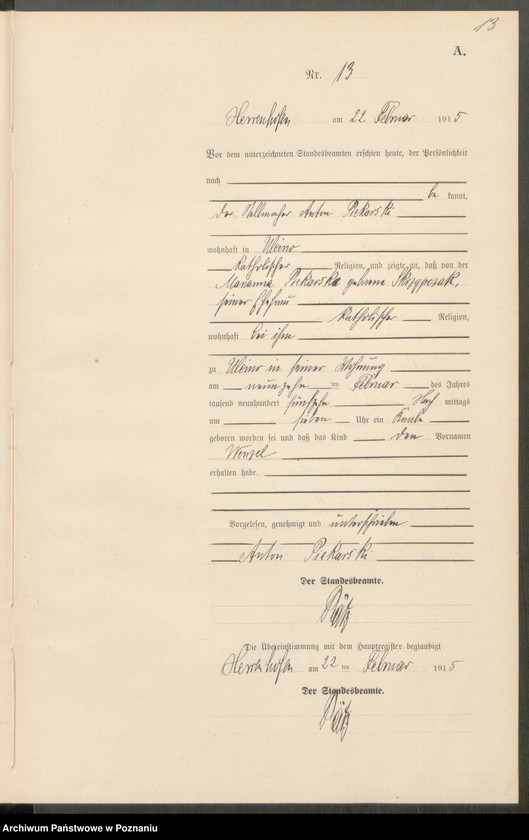 13
A.
Nr. 13
Herrenhofen am 22 Februar 1915
Vor dem unterzeichneten Standesbeamten erschien heute, der Persönlichkeit
nach
be kannt,
der Stellmacher Anton Piekarski
wohnhaft in
katholischer Religion, und zeigte an, daß von der
Marianna Piekarska geborene Skrzypczak,
seiner Ehefrau
katholischer Religion,
wohnhaft bei ihm
zu in seiner Wohnung
am neunzehn ten Februar des Jahres
tausend neunhundert fünfzehn Nach mittags
um sieben Uhr ein Knabe
geboren worden sei und daß das Kind den Vornamen
Wenzel
erhalten habe.
Vorgelesen, genehmigt und unterschrieben
Anton Piekarski
Der Standesbeamte.
Die Übereinstimmung mit dem Hauptregister beglaubigt
Herrenhofen am 22 ten Februar 1915
Der Standesbeamte.
Archiwum Państwowe w Poznaniu